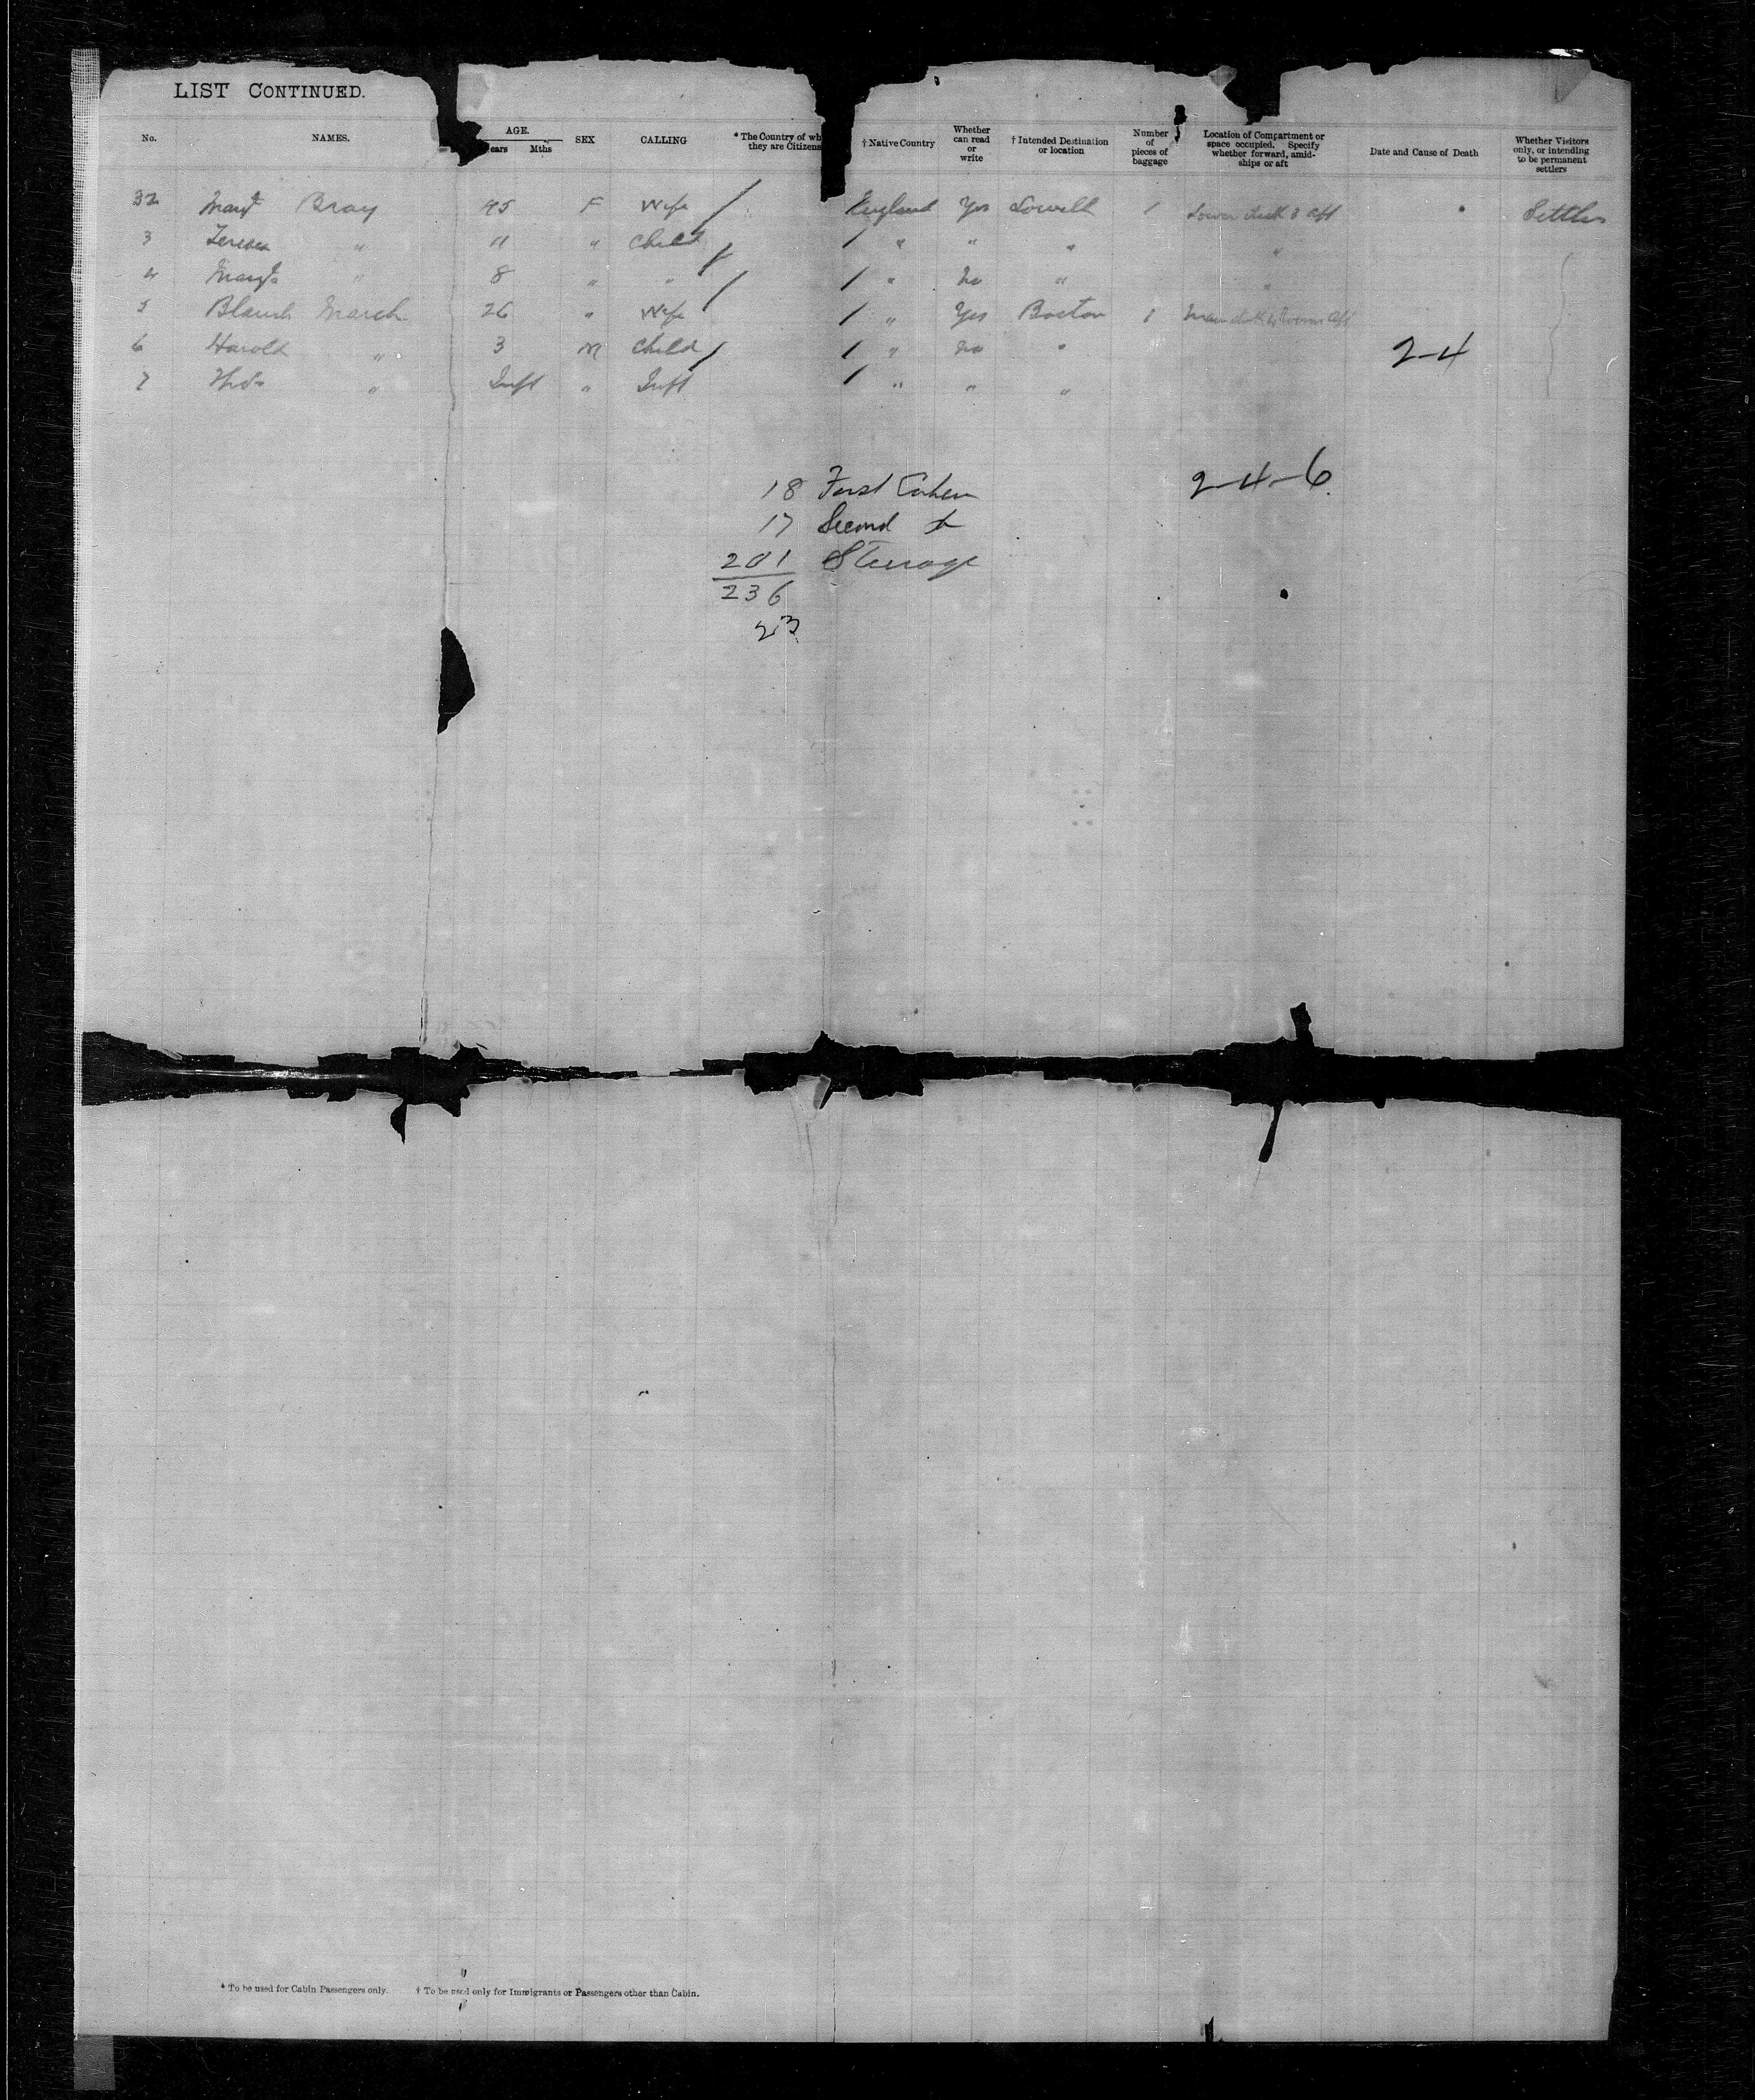 LIST CONTINUED.
No. NAMES. AGE. ears Mths SEX CALLING * The Country of wh they are Citizens † Native Country Whether can read or write † Intended Destination or location Number of pieces of baggage Location of Compartment or space occupied. Specify whether forward, amid-ships or aft Date and Cause of Death Whether Visitors only, or intending to be permanent settlers
32 Margt Bray 45 F Wife / England Yes Lowell 1 Lower deck 3 aft Settler
3 Teresa " 11 " Child / / " " " "
4 Margt " 8 " " / / " No " "
5 Blanch March 26 " Wife / " Yes Boston 1 Main deck aft
6 Harold " 3 M Child / / " No " 2-4
7 " Inft " Inft / " " "
18 First Cabin 2-4-6
17 Second
201 Steerage
236
23
* To be used for Cabin Passengers only. † To be used only for Immigrants or Passengers other than Cabin.